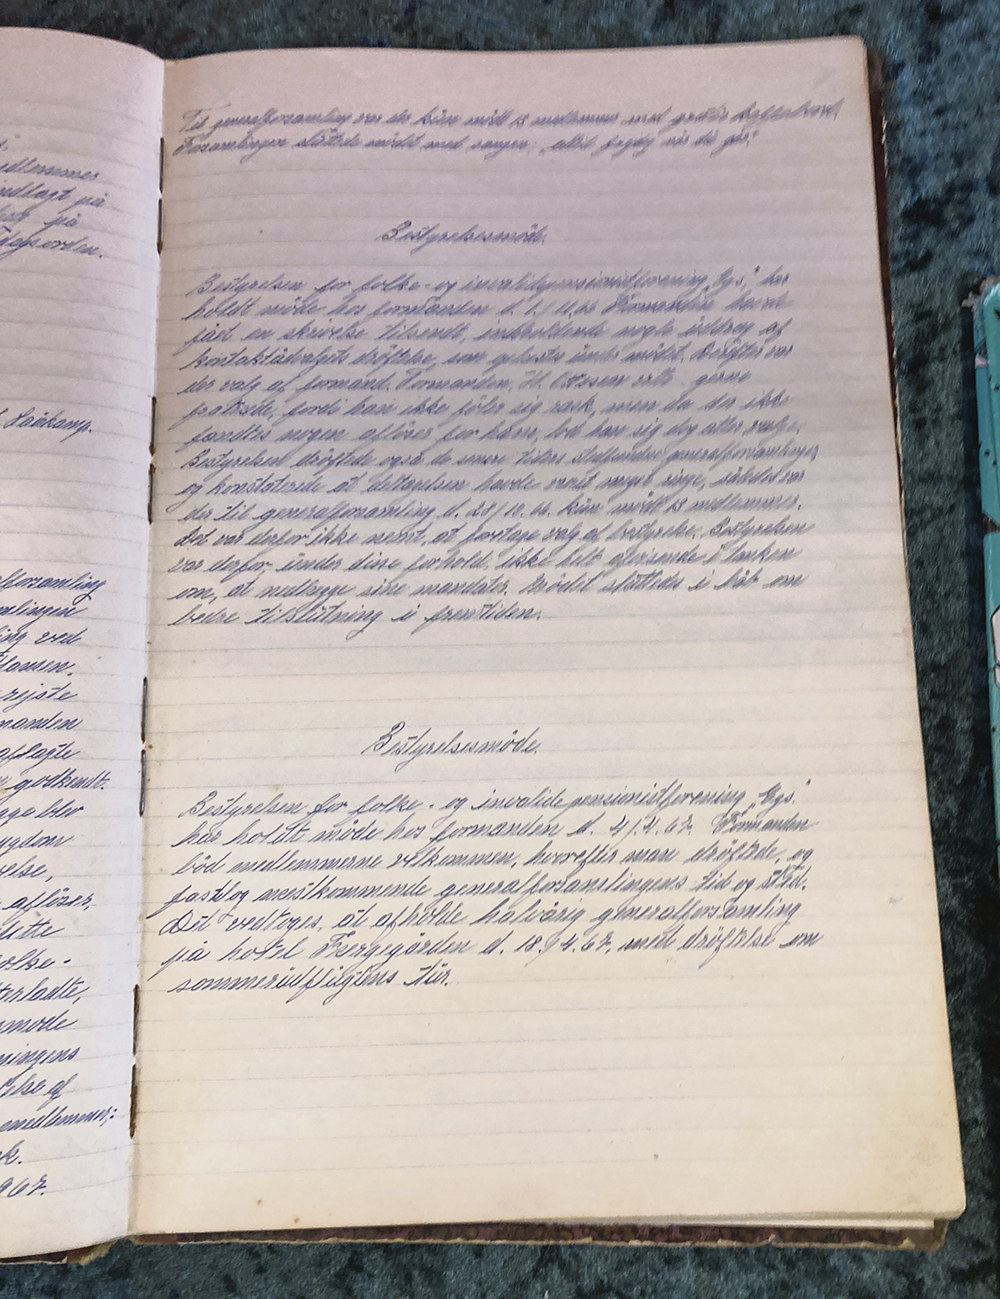 edlemmer
indlagt på
på
dagsorden.
Laukamp.
forsamling
mlingen
ing ved
rejste
manden
aflagte
godkendt.
blev
ygdom
else,
afløser.
dette
folke-
terladte,
møde
ningens
else af
medlemmer;
967.
Til generalforsamling var der kun mödt 18 medlemmer med gratis kaffebord.
Forsamlingen sluttede mödet med sangen: „altid frejdig når du går."
Bestyrelsesmöde.
Bestyrelsen for folke- og invalidepensionistforening „Ægs." har
holdt möde hos formanden d. 1/11.66 Formanden havde
fået en skrivelse tilsendt, indeholdende nogle uddrag af
kontaktudvalgets dröftelse, som oplæstes under mödet. Derefter var
der valg af formand. Formanden, H. Ottesen ville gerne
fratræde, fordi han ikke föler sig rask, men da der ikke
fandtes nogen aflöser for ham, lod han sig dog atter vælge.
Bestyrelsen dröftede også de senere tiders stedfundne generalforsamlinger,
og konstaterede at deltagelsen havde været meget ringe, således var
der til generalforsamling d. 28/10.66. kun mödt 18 medlemmer.
Det var derfor ikke nemt, at foretage valg af bestyrelse. Bestyrelsen
var derfor, under disse forhold, ikke helt afvisende i tanken
om, at nedlægge sine mandater. Mödet sluttedes i håb om
bedre tilslutning i fremtiden.
Bestyrelsesmöde.
Bestyrelsen for folke- og invalidepensionistforening „Ægs."
har holdt möde hos formanden d. 4/4.67. Formanden
böd medlemmerne velkommen, hvorefter man dröftede, og
fastlog næstkommende generalforsamlingens tid og sted.
Det vedtoges, at afholde halvårig generalforsamling
på hotel Færgegården d. 18./4.67. med dröftelse om
sommerudflugtens tur.